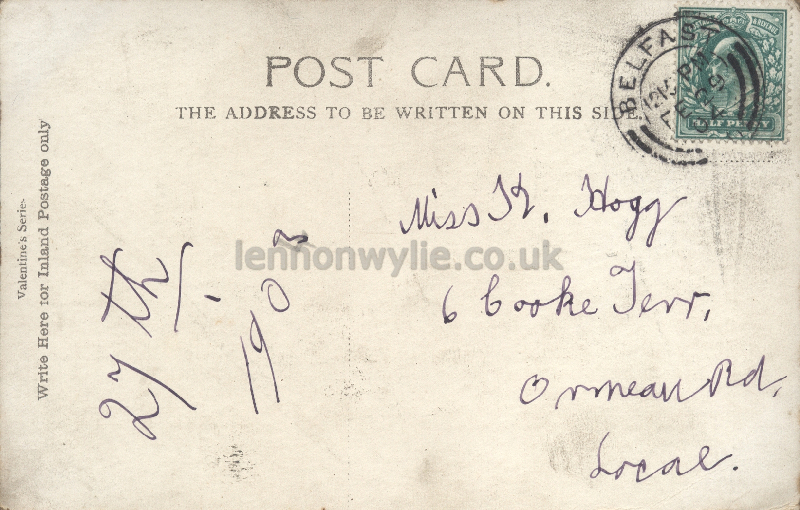 POST CARD.
THE ADDRESS TO BE WRITTEN ON THIS SIDE.
BELFAST
12 15 PM
FE 29
04
HALF PENNY
Valentine's Series
Write Here for Inland Postage only
27th
190
Miss K. Hogg
6 Cooke Terr,
Ormeau Rd,
Local.
lennonwylie.co.uk